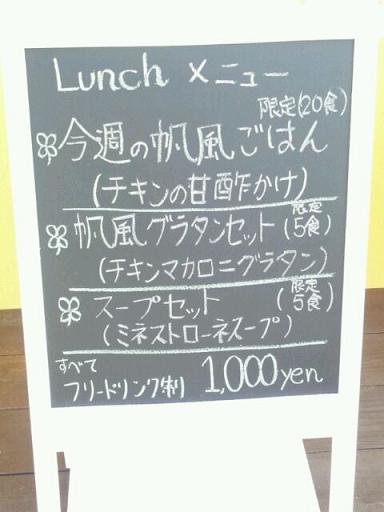 Lunch メニュー
限定(20食)
今週の帆風ごはん
(チキンの甘酢かけ)
帆風グラタンセット(限定5食)
(チキンマカロニグラタン)
スープセット(限定5食)
(ミネストローネスープ)
すべて
フリードリンク制 1,000yen